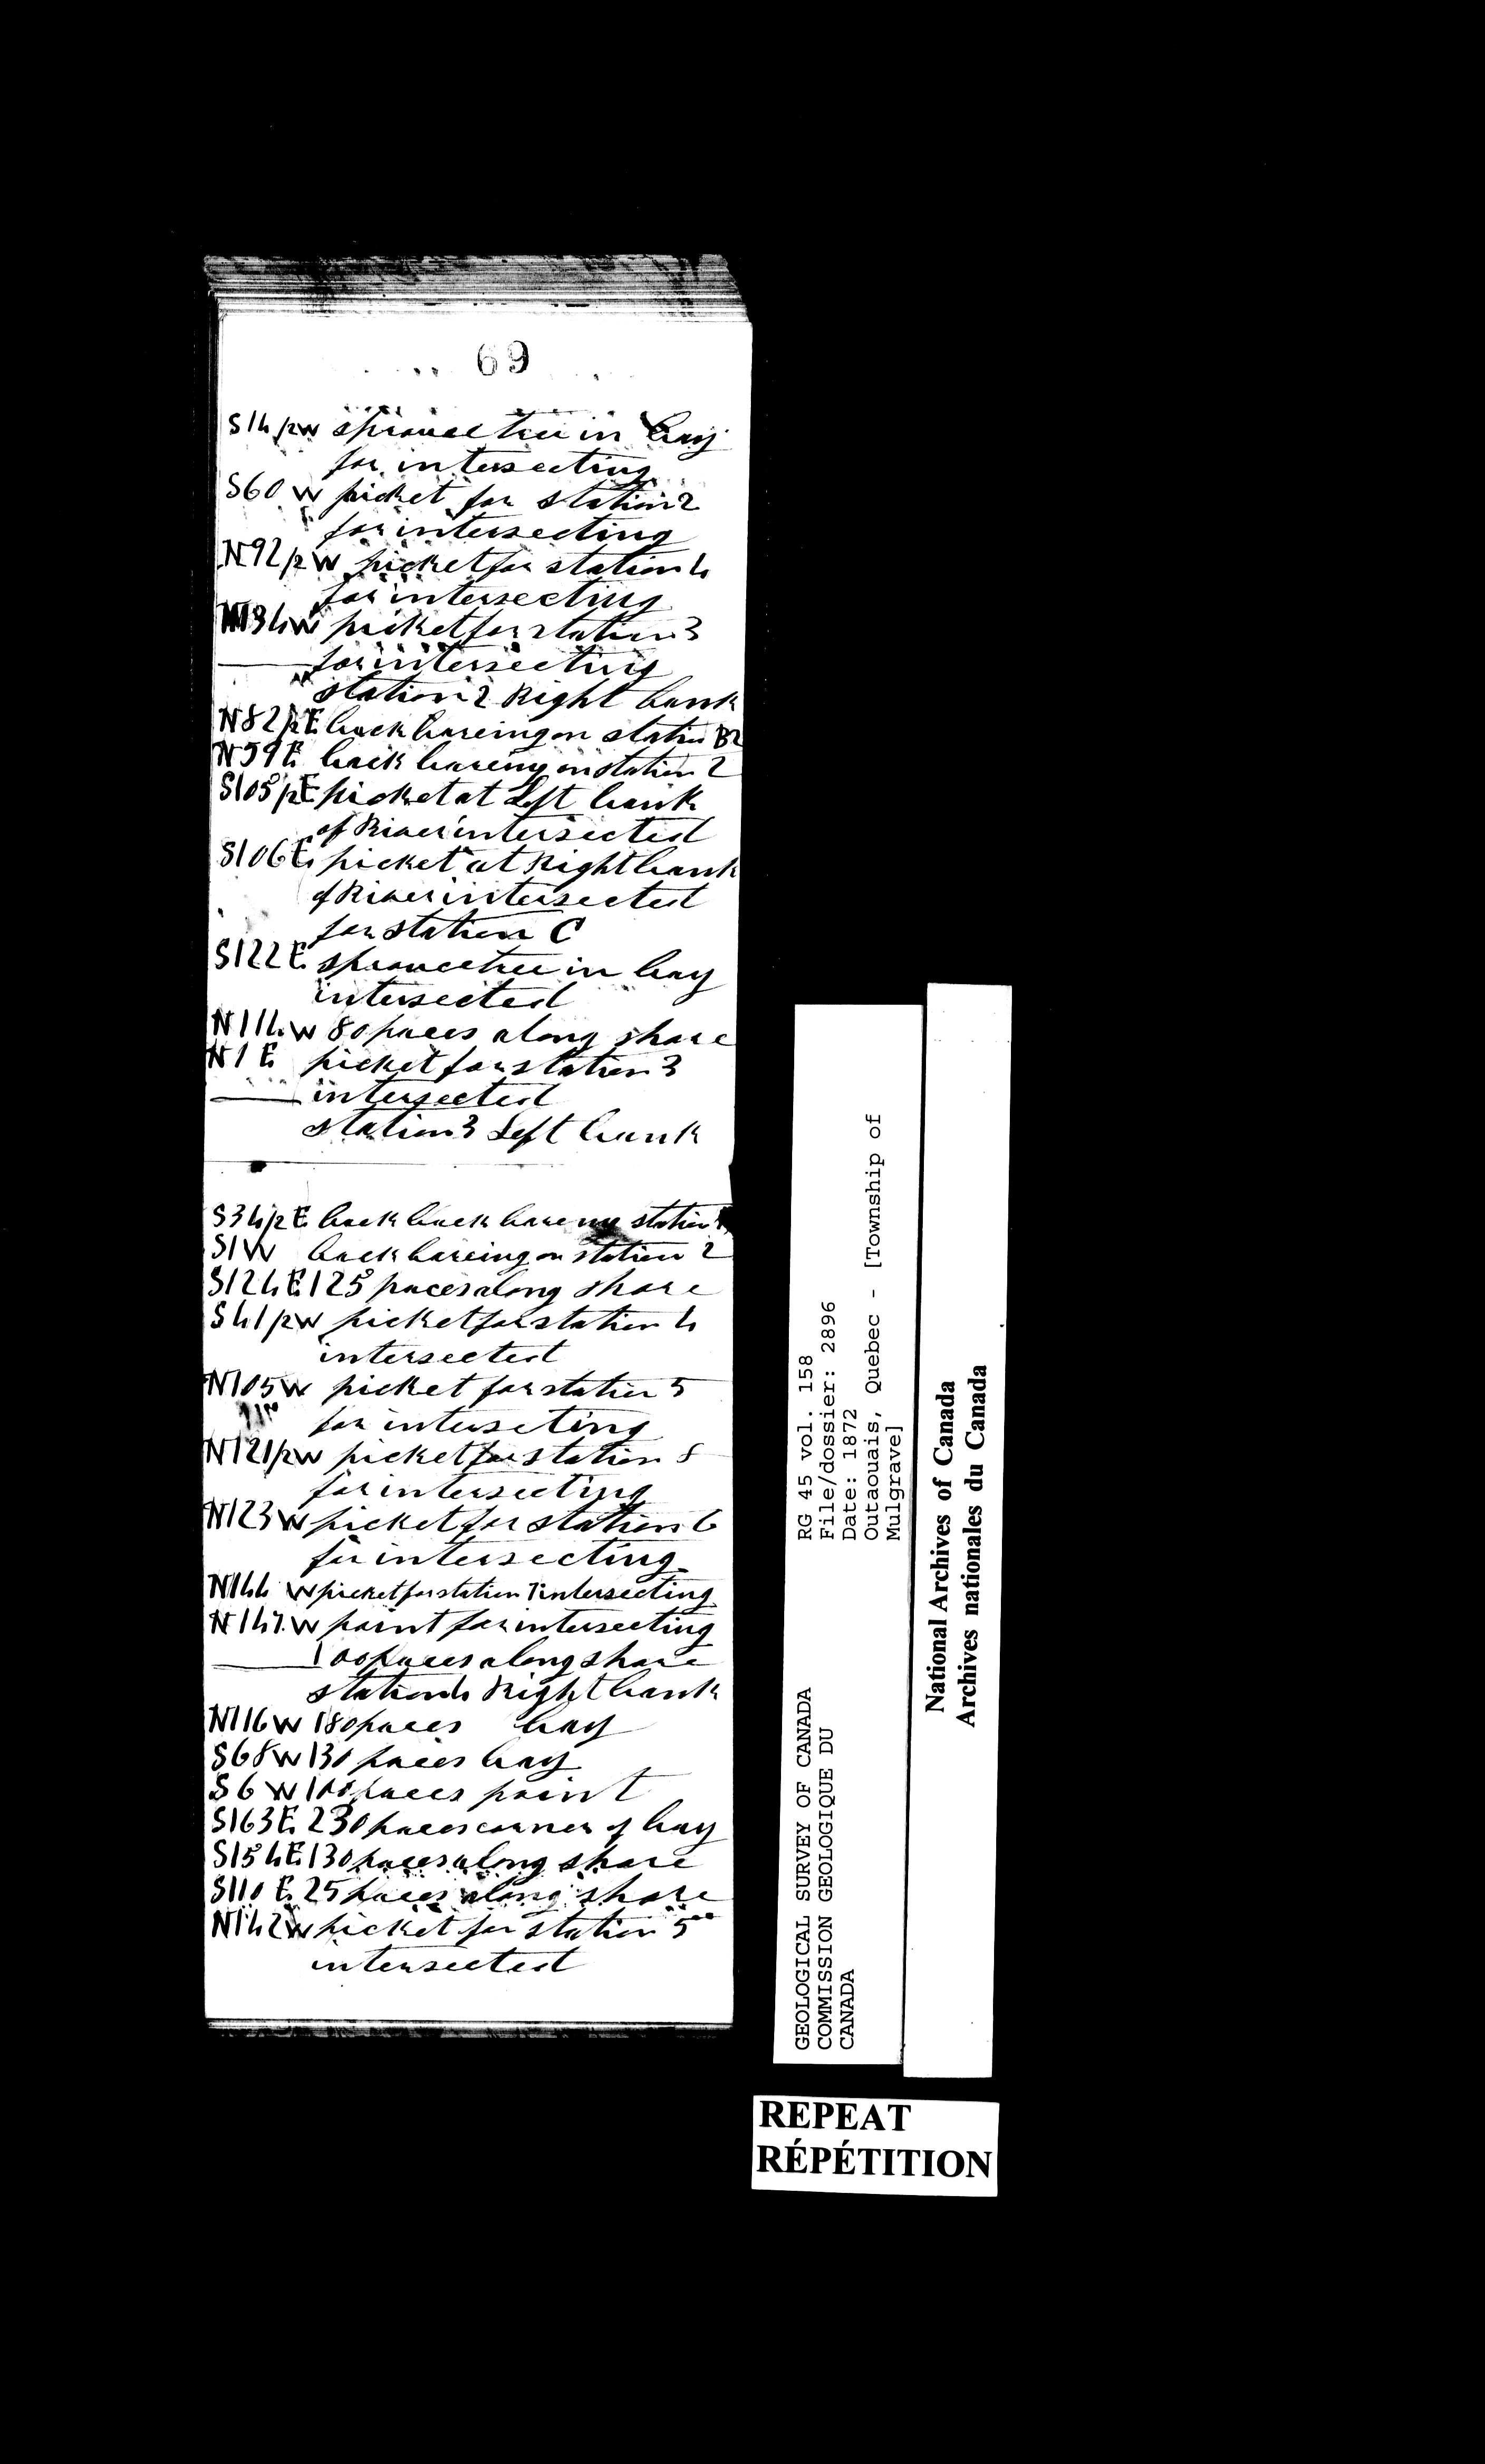 69
S14/2W sprouce tree in bay
for intersecting
S60 W picket for station 2
for intersecting
N92/2W picket for station 4
for intersecting
34W picket for station 3
for intersecting
station 2 Right bank
N82/2E back bareing on station B2
N59E back bareing on station 2
S105/2E picket at Left bank
of River intersected
S106E picket at Right bank
of River intersected
for station C
S122E sprouce tree in bay
intersected
N114W 80 paces along shore
N1E picket for station 3
intersected
station 3 Left bank
S34/2E back back bareing station
S1W back bareing on station 2
S124E 125 paces along shore
S41/2W picket for station 4
intersected
N105W picket for station 5
for interseting
N121/2W picket for station 8
for intersecting
N123W picket for station 6
for intersecting
N144 W picket for station 7 intersecting
N147W point for intersecting
100 paces along shore
station 4 Right bank
N116W 180 paces bay
S68W 130 paces bay
S6W 100 paces point
S163E 230 paces corner of bay
S154E 130 paces along shore
S110E 25 paces along shore
N142W picket for station 5
intersected
GEOLOGICAL SURVEY OF CANADA
COMMISSION GEOLOGIQUE DU
CANADA
RG 45 vol. 158
File/dossier: 2896
Date: 1872
Outaouais, Quebec - [Township of
Mulgrave]
National Archives of Canada
Archives nationales du Canada
REPEAT
RÉPÉTITION